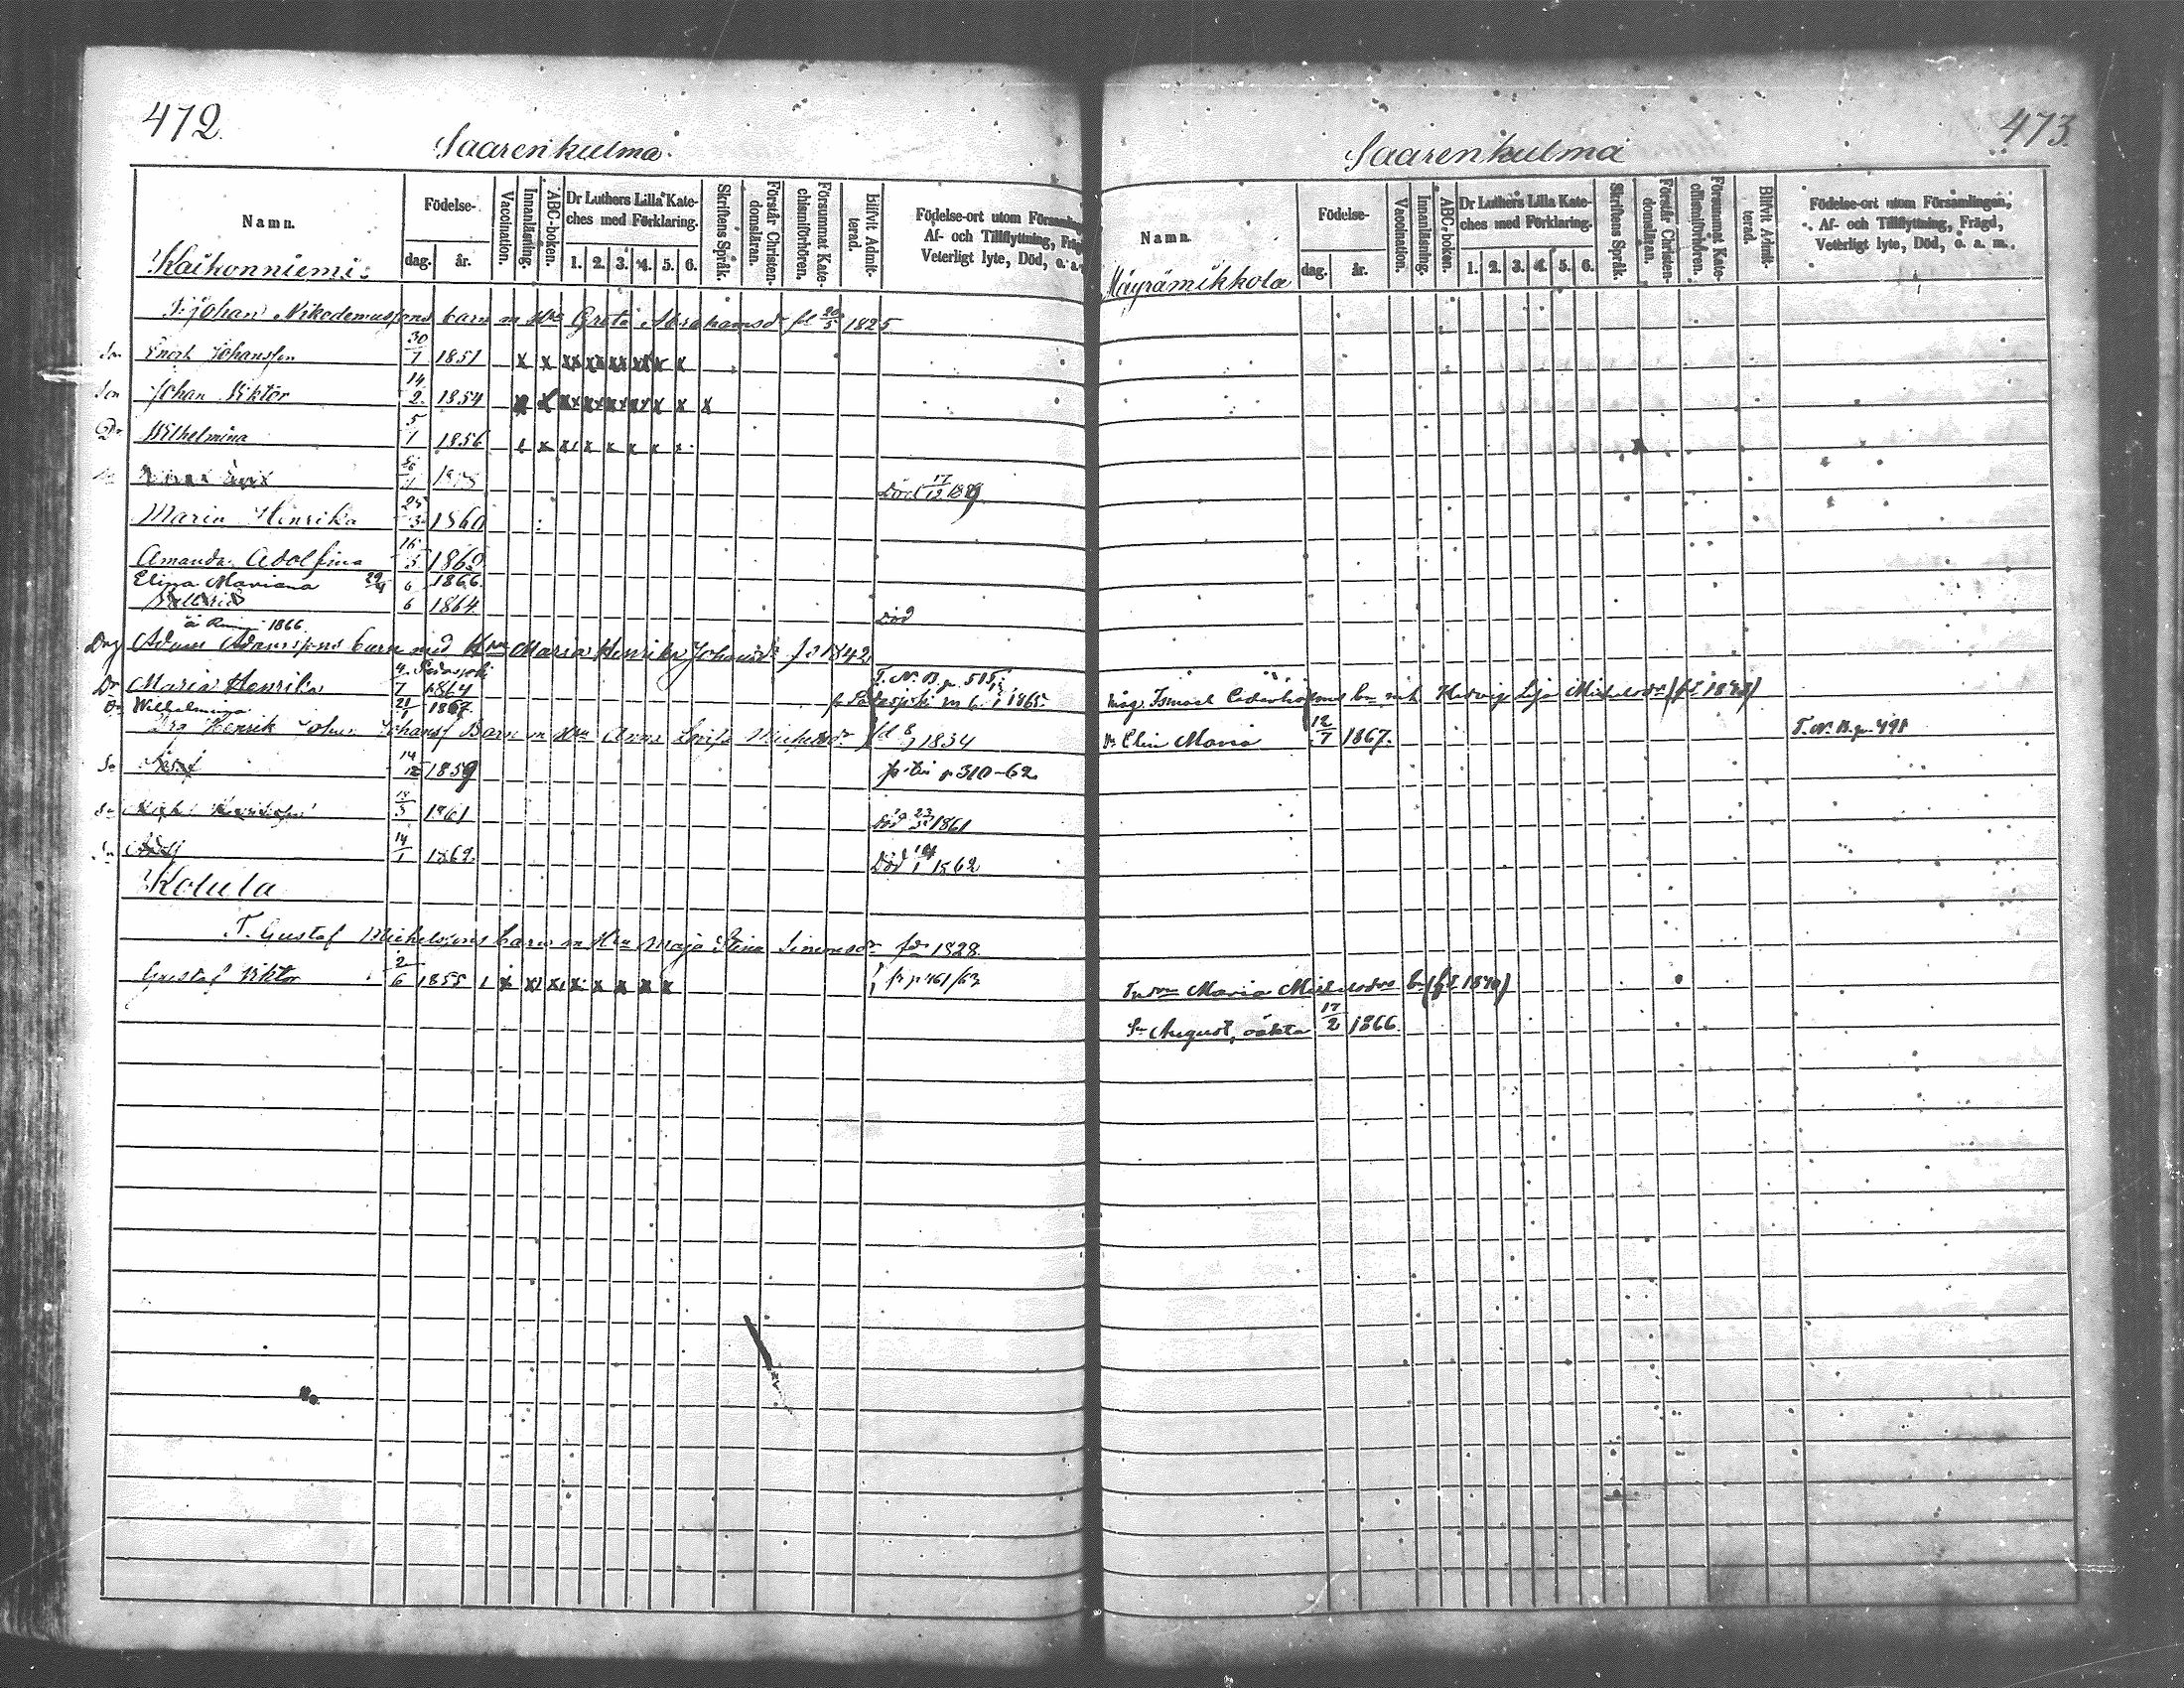 472.
Saarenkulma.
Namn.
Födelse-
dag. år.
Vaccination.
Innanläsning.
ABC-boken.
Dr Luthers Lilla Kate-
ches med Förklaring.
1. 2. 3. 4. 5. 6.
Skriftens Språk.
Förstår Christen-
domsläran.
Försummat Kate-
chismiförhören.
Blifvit Admit-
terad.
Födelse-ort utom Församlin
Af- och Tillflyttning, Fräg
Veterligt lyte, Död, o. a.
Kaikonniemi:
T. Johan Nikodemussons barn m Hu Greta Abrahamsdr fd 20/5 1825
Son Enoch Johansson 30/7 1851 x x xx xx xx xx x x
Son Johan Viktor 14/2 1854 x x x x x
Dr Wilhelmina 5/1 1856 x x x x x x
Död 17/12 1859
Maria Henrika 25/3 1860
Amanda Adolfina 16/5 1863
Elina Mariana 29/4 1866.
6 1864 Död
1866
Drg Adam Adamssons barn med Hu Maria Henrika Johansdr fd 1842
Dr Maria Henrika 4/7 1864 T. N. B. p. 515,
Dr Wilhelmina 21/1 1867. m b. i 1865.
Henrik Johan Johanss Barn m Hu Anna Lovisa Michelsdr fd 8/9 1834
Sn 14/12 1859 p 310-62
Sn 18/5 1861 Död 23/5 1861
Sn Adolf 14/1 1862. Död 14/1 1862
Kolula
T. Gustaf Michelssons barn m Hu Maja Stina Simonsdr fdr 1828.
Gustaf Viktor 2/6 1855 x x x x x x x fr p 461/62
473.
Saarenkulma
Namn.
Födelse-
dag. år.
Vaccination.
Innanläsning.
ABC-boken.
Dr Luthers Lilla Kate-
ches med Förklaring.
1. 2. 3. 4. 5. 6.
Skriftens Språk.
Förstår Christen-
domsläran.
Försummat Kate-
chismiförhören.
Blifvit Admit-
terad.
Födelse-ort utom Församlingen,
Af- och Tillflyttning, Frägd,
Veterligt lyte, Död, o. a. m.
Mäyrämikkola
Ismael Cederholms bn m h Hedvig Lisa Michelsdr (fd 1843)
Dr Elin Maria 12/7 1867. T. N. B. p. 491
Maria Michelsdrs bn (fd 1840)
Sn August, oäkta 17/2 1866.